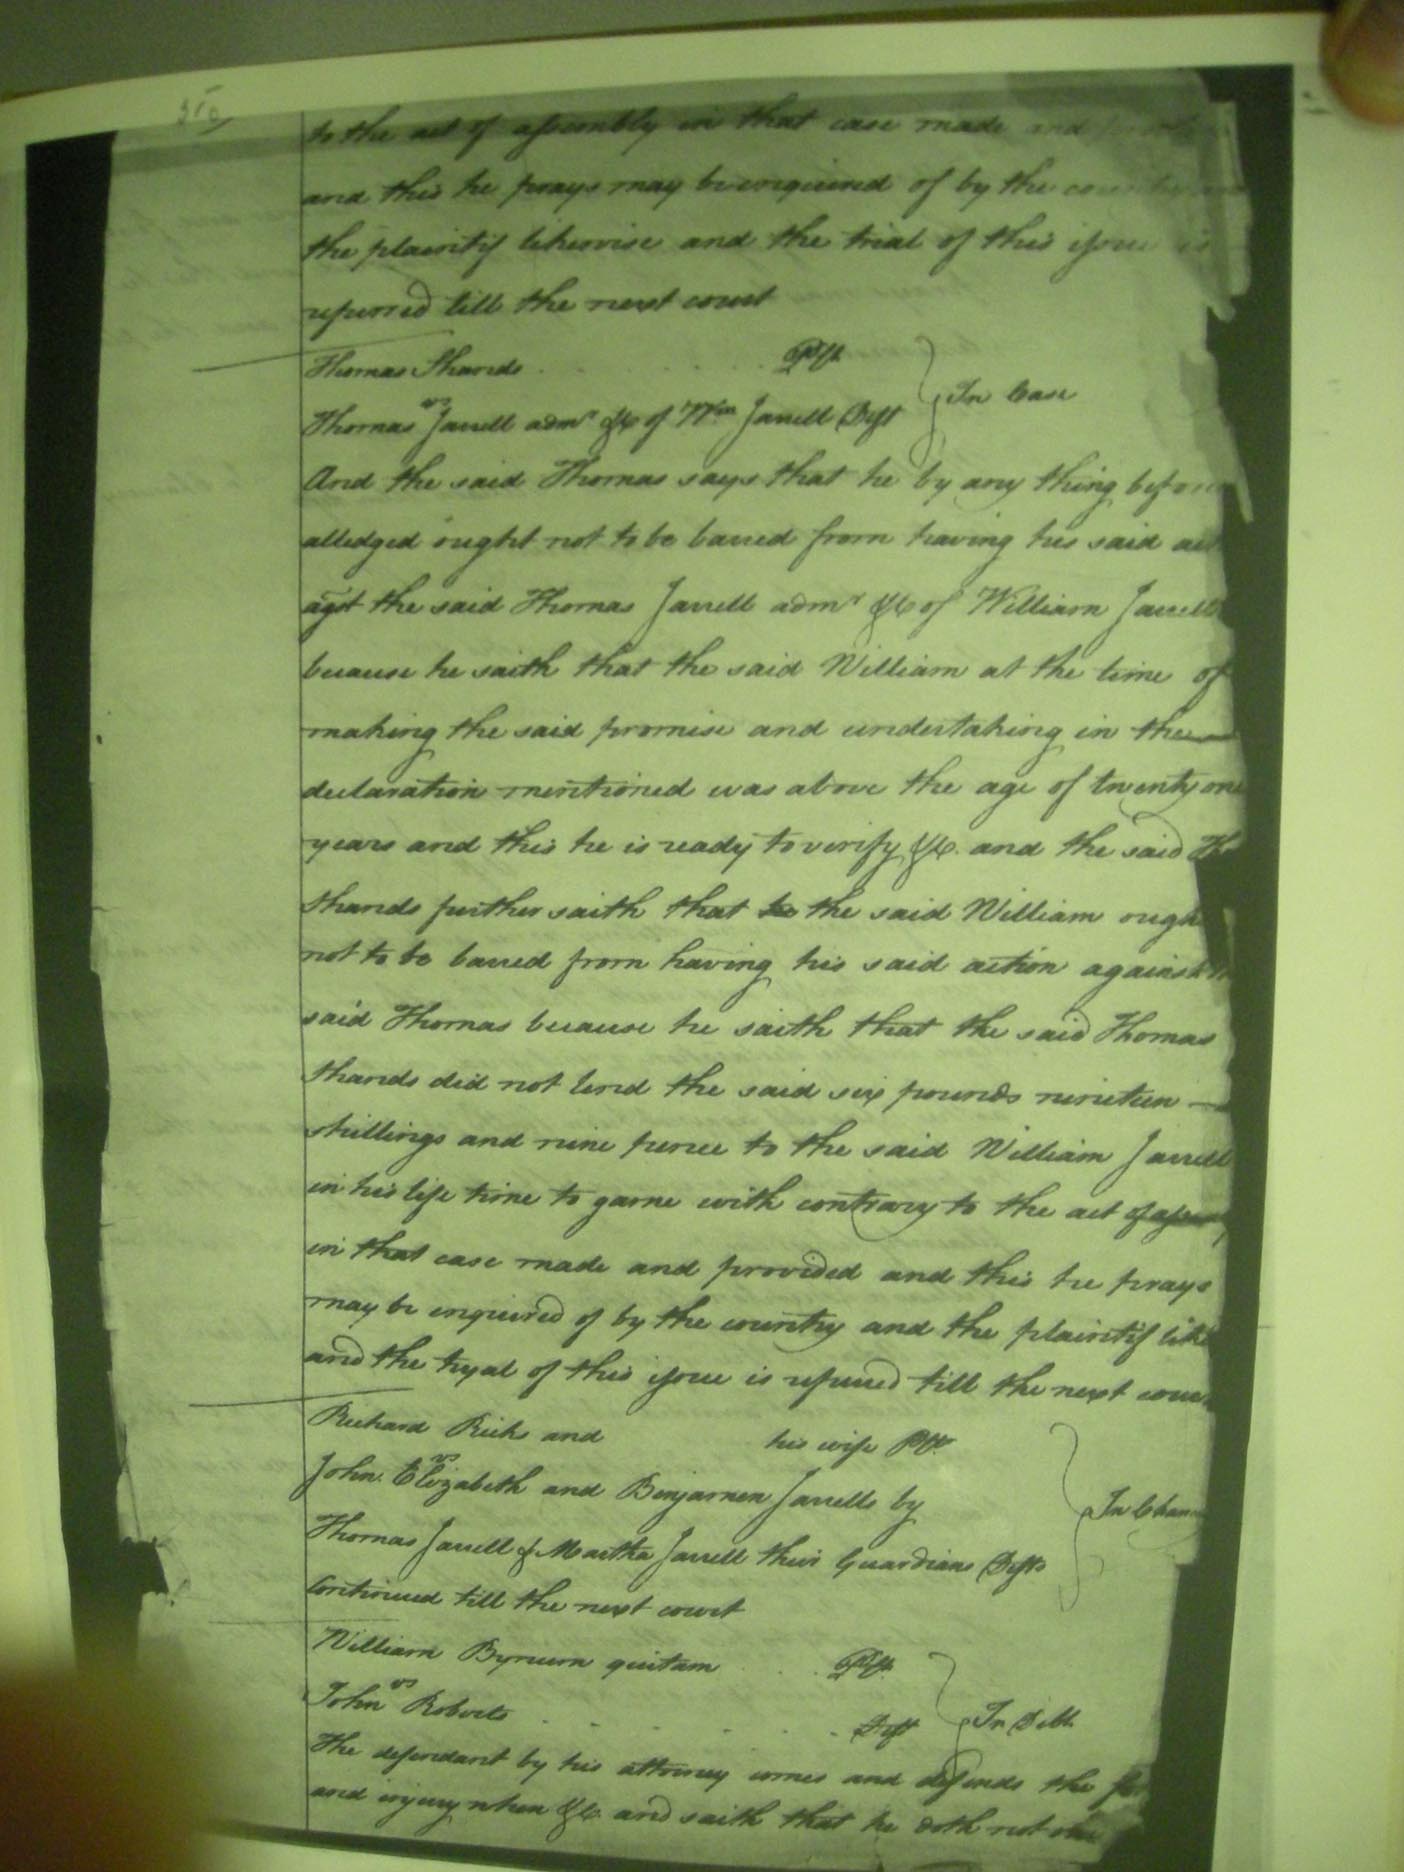 to the act of assembly in that case made and
and this he prays may be enquired of by the
the plaintif likewise and the trial of this issue is
referred till the next court
Thomas Shands . . . . . Plt.
vs
Thomas Jarrell admr &c of Wm Jarrell Deft
In Case
And the said Thomas says that he by any thing before
alledged ought not to be barred from having his said act
agst the said Thomas Jarrell admr &c of William Jarrell
because he saith that the said William at the time of
making the said promise and undertaking in the
declaration mentioned was above the age of twenty one
years and this he is ready to verify &c. and the said Tho
Shands further saith that the said William ough
not to be barred from having his said action against
said Thomas because he saith that the said Thomas
Shands did not lend the said six pounds nineteen
shillings and nine pence to the said William Jarrell
in his life time to game with contrary to the act of
in that case made and provided and this he prays
may be enquired of by the country and the plaintif like
and the tryal of this issue is referred till the next cour
Richard Ricks and his wife Plts
vs
John Elizabeth and Benjamen Jarrells by
Thomas Jarrell & Martha Jarrell their Guardians Defts
In Chan
Continued till the next court
William Byrnum quitam . . . Plt.
vs
John Roberts . . . . . . . Deft
In Debt.
The defendant by his attorney comes and defends the
and injury when &c. and saith that he doth not